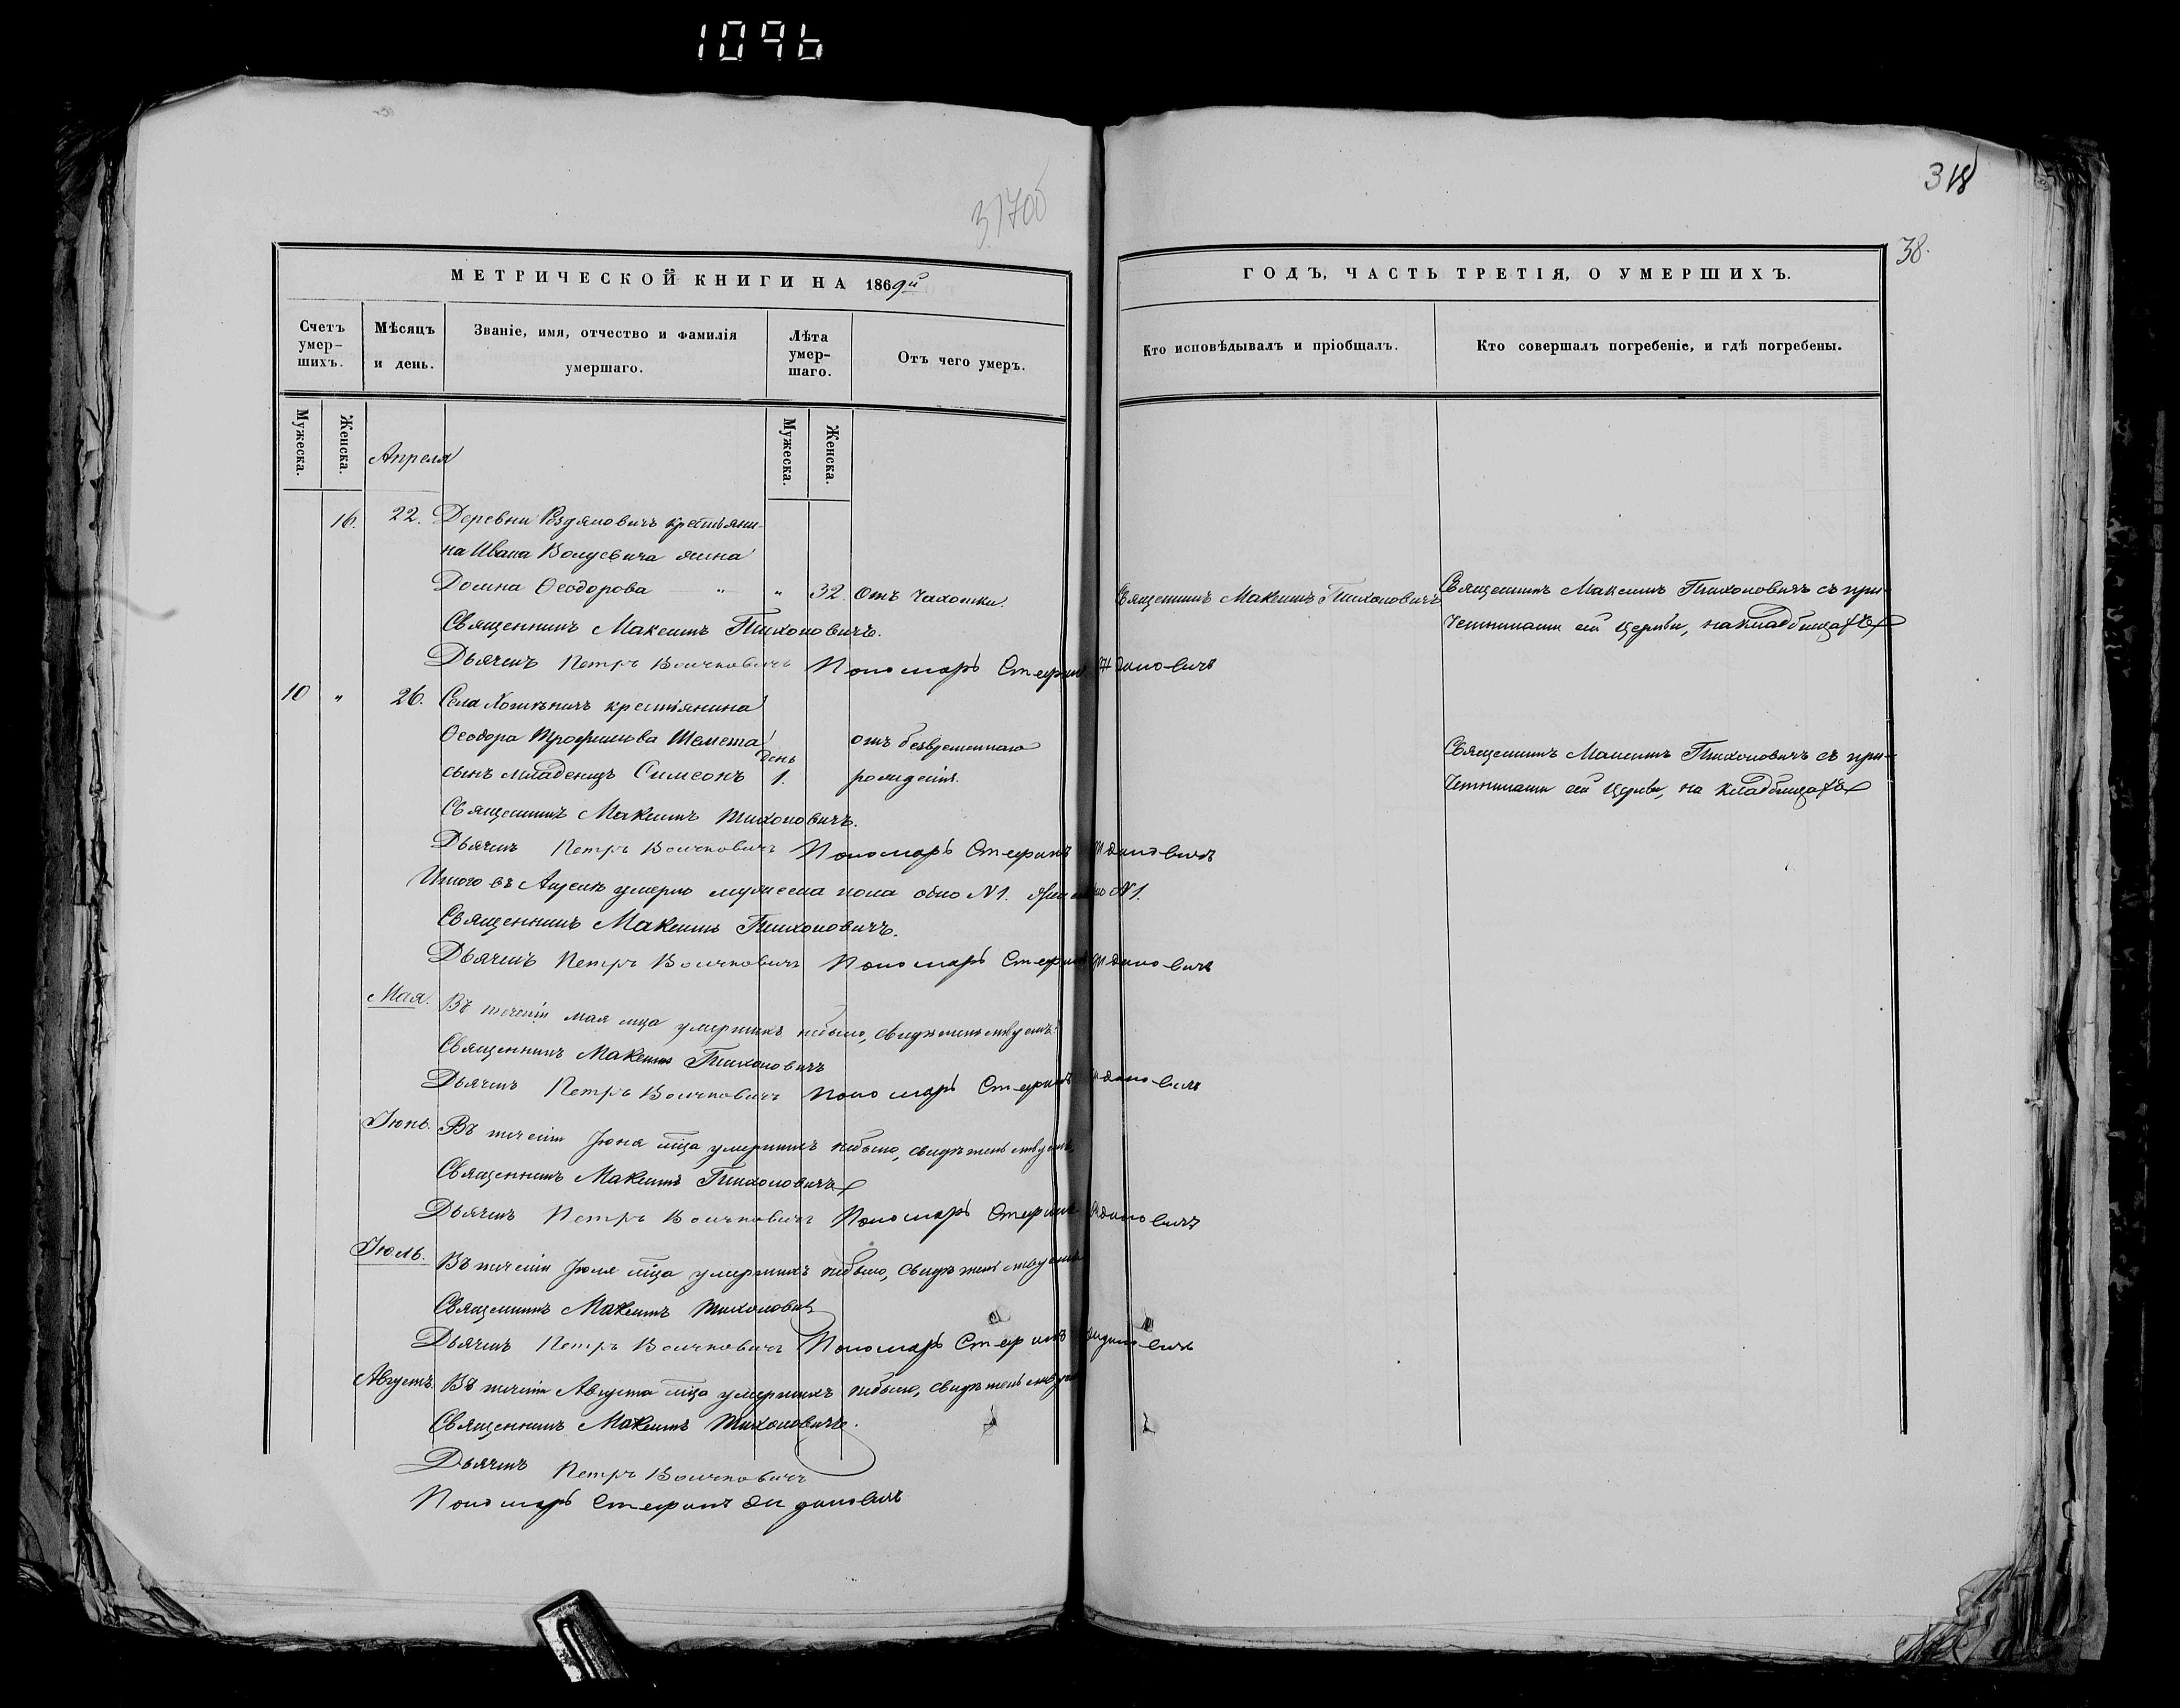 1096
317об
318
38.
МЕТРИЧЕСКОЙ КНИГИ НА 1869й
Счетъ умер-
шихъ.
Мѣсяцъ
и день.
Званіе, имя, отчество и фамилія
умершаго.
Лѣта
умер-
шаго.
Отъ чего умеръ.
Мужеска.
Женска.
Мужеска.
Женска.
Апреля
16. 22. Деревни крестьяни-
на Ивана жена
Домна Ѳеодорова " " 32. Отъ чахотки.
Священникъ Максимъ Тихоновичъ.
Дьячекъ Петръ Волчковичъ Пономарь Стефанъ
10 " 26. Села крестьянина
Ѳеодора Трофимова Шемета отъ безвременнаго
сынъ младенецъ Симеонъ день 1. рожденія.
Священникъ Максимъ Тихоновичъ.
Дьячекъ Петръ Волчковичъ Пономарь Стефанъ
Итого въ Апрелѣ умерло мужеска пола одно №1. №1.
Священникъ Максимъ Тихоновичъ.
Дьячекъ Петръ Волчковичъ Пономарь Стефанъ
Мая. Въ теченіи мая мца умершихъ небыло, свидѣтельствуемъ:
Священникъ Максимъ Тихоновичъ
Дьячекъ Петръ Волчковичъ Пономарь Стефанъ
Іюнь. Въ теченіи Іюня мца умершихъ небыло, свидѣтельствуемъ,
Священникъ Максимъ Тихоновичъ
Дьячекъ Петръ Волчковичъ Пономарь Стефанъ
Іюль. Въ теченіи Іюля мца умершихъ небыло, свидѣтельствуемъ
Священникъ Максимъ Тихоновичъ
Дьячекъ Петръ Волчковичъ Пономарь Стефанъ
Августъ. Въ теченіи Августа мца умершихъ небыло, свидѣтельствуемъ
Священникъ Максимъ Тихоновичъ.
Дьячекъ Петръ Волчковичъ
Пономарь Стефанъ
ГОДЪ, ЧАСТЬ ТРЕТІЯ, О УМЕРШИХЪ.
Кто исповѣдывалъ и пріобщалъ.
Кто совершалъ погребеніе, и гдѣ погребены.
Священникъ Максимъ Тихоновичъ
Священникъ Максимъ Тихоновичъ съ при-
четниками сей Церкви, на кладбищахъ
Священникъ Максимъ Тихоновичъ съ при-
четниками сей Церкви, на кладбищахъ